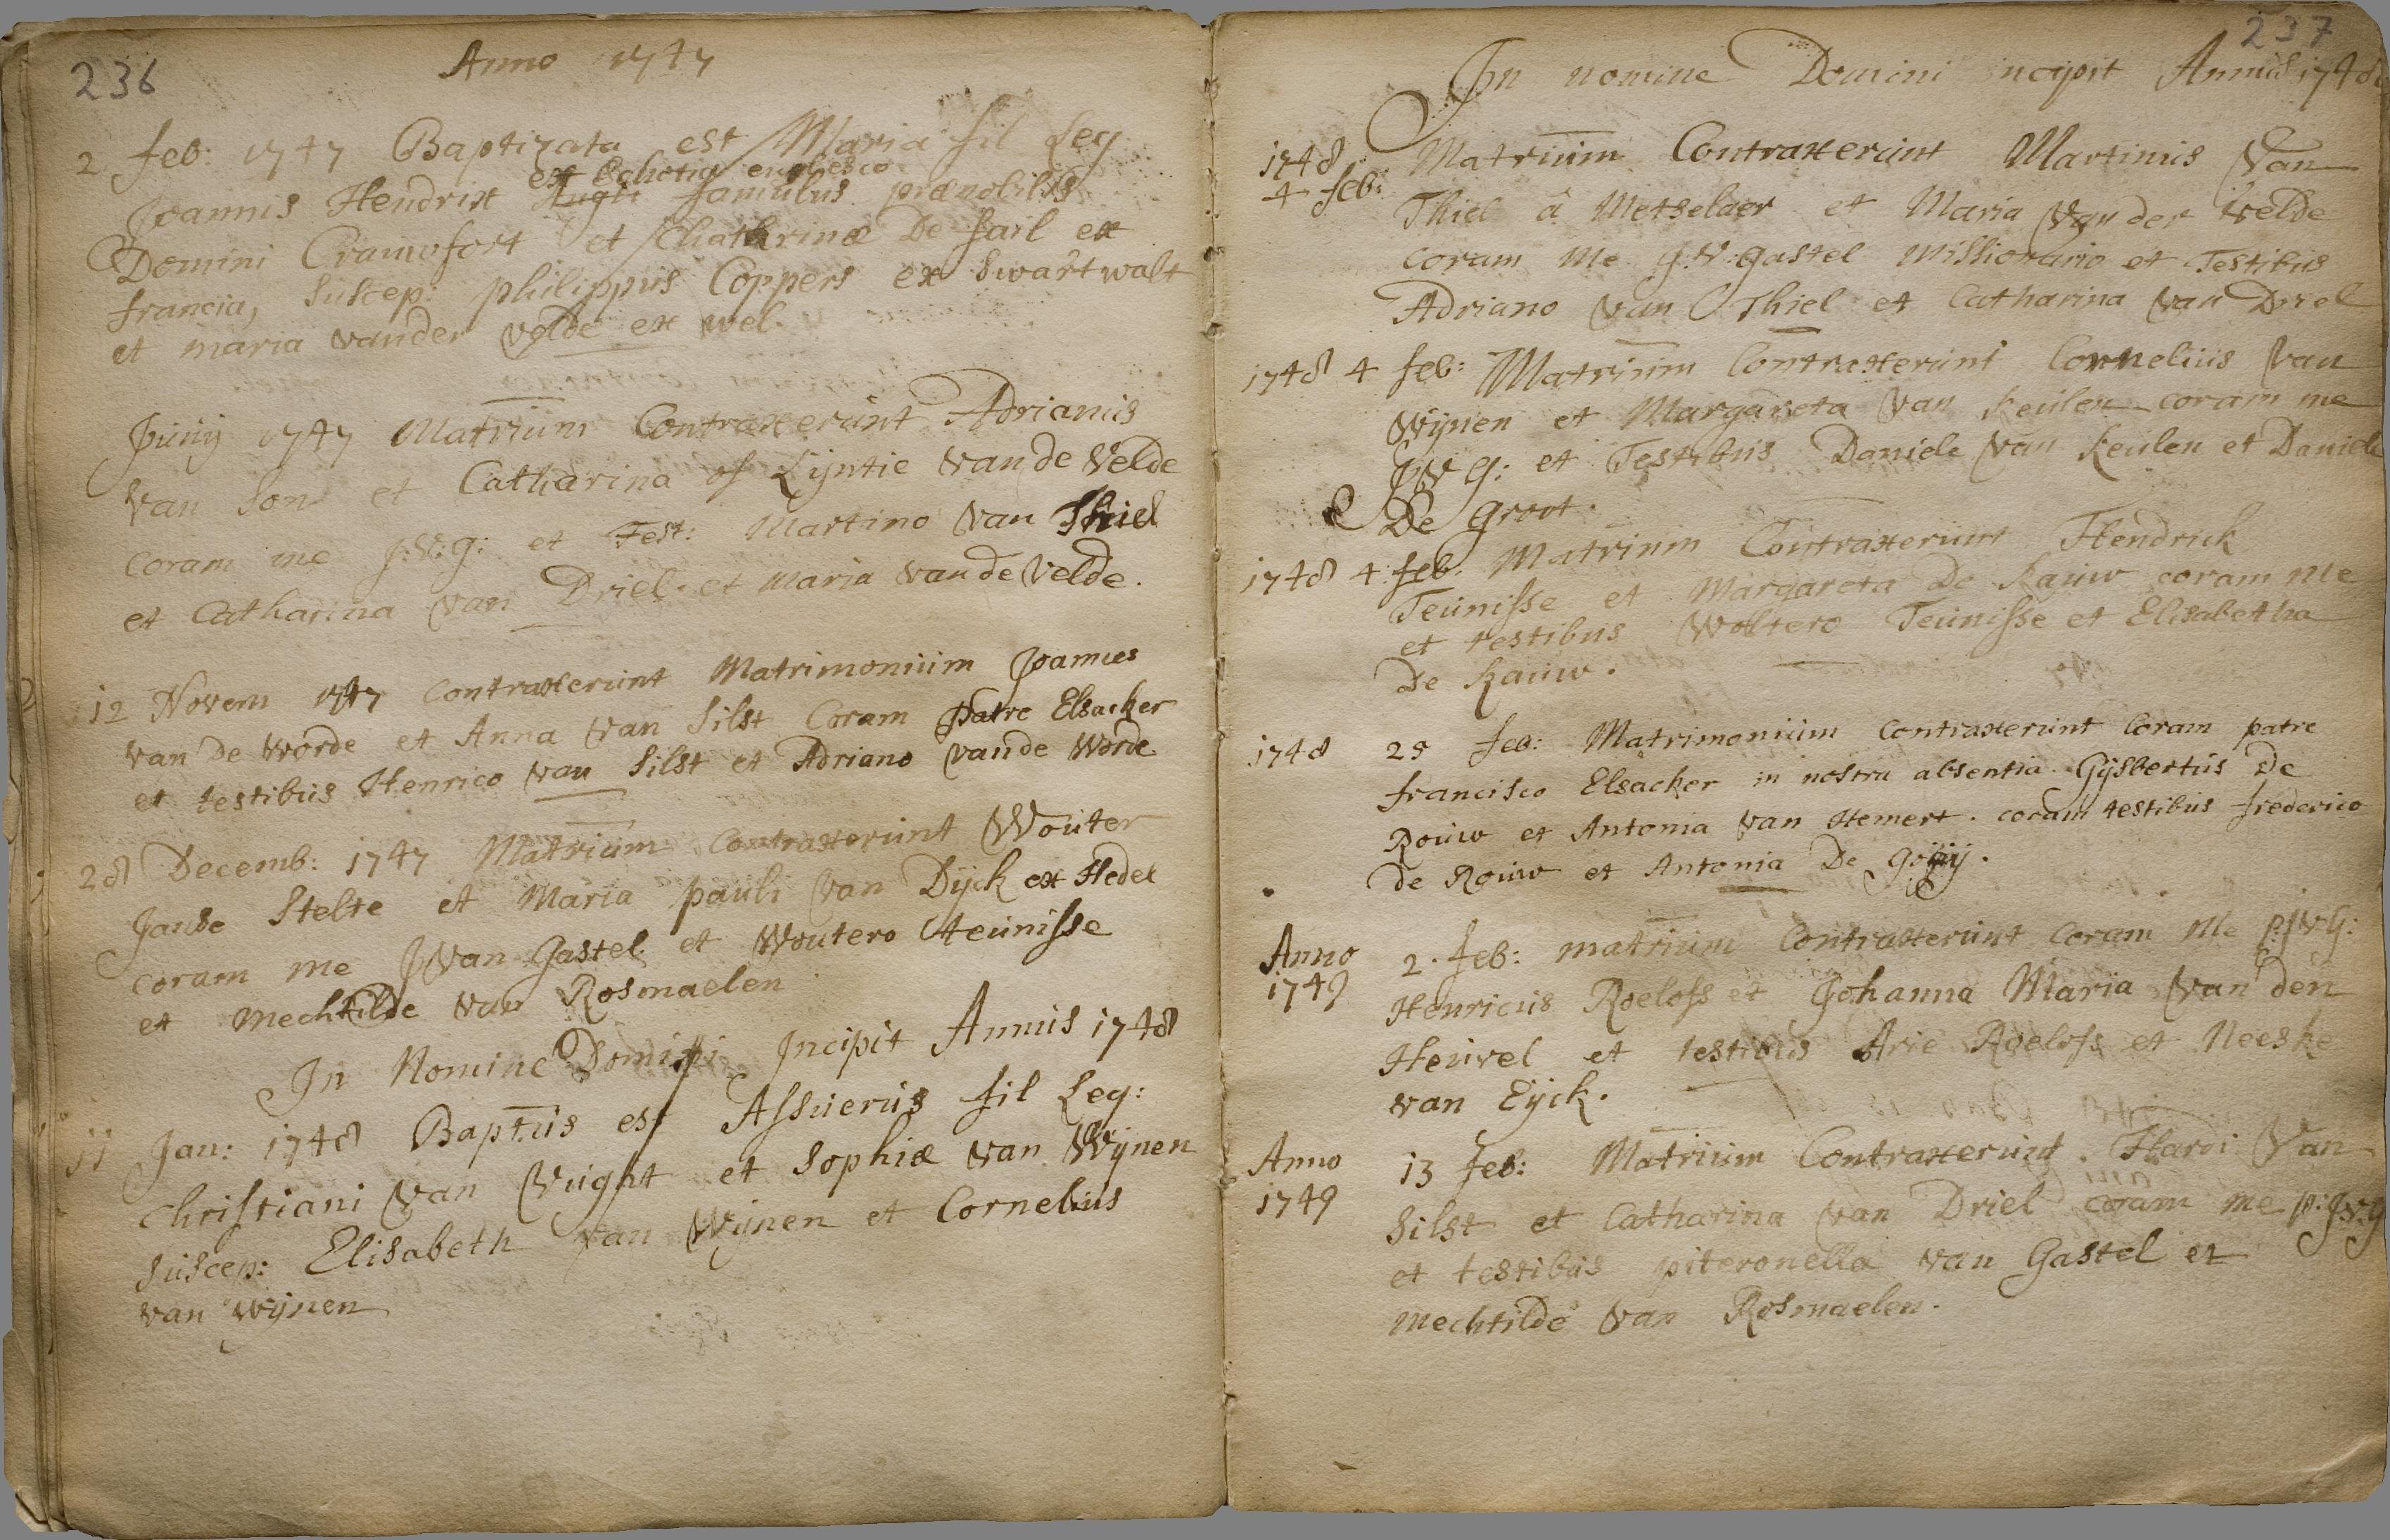 236
Anno 1747
2 feb: 1747 Baptizata est Maria fil Leg
est Schotia englesco
Joannis Hendrix famulus prænobilis
Domini Crauwfort et Chathrinæ De fail ex
francia, suscep: philippus Coppers ex Swartwalt
et maria vander velde ex wel
Junij 1747 Matrium Contraxerunt Adrianus
van Son et Catharina of Lijntie van de Velde
coram me J:V:g: et Test: Martino van Thiel
et Catharina van Driel et maria van de velde.
12 Novem 1747 contraxerunt Matrimonium Joannes
van De worde et Anna van Silst Coram patre Elsacker
et testibus Henrico van Silst et Adriano vande Worde
28 Decemb: 1747 Matrium contraxerunt Wouter
Janse Stelte et Maria pauli van Dijck ex Hedel
coram me J van Gastel et Woutero teunisse
et mechtilde van Rosmaelen
In Nomine Domini Incipit Annus 1748
11 Jan: 1748 Baptus est Assuerus fil Leg:
christiani van Vught et Sophiæ van Wijnen
suscep: Elisabeth van Wijnen et Cornelius
van wijnen
237
In nomine Domini incipit Annus 1748
1748 Matrium Contraxerunt Martinus van
4 feb: Thiel à Metselaer et Maria van der velde
coram me J:V:gastel missionario et Testibus
Adriano van Thiel et Catharina van Driel
1748 4 feb: Matrium Contraxerunt Cornelius van
Wijnen et Margareta van keulen coram me
JVG: et Testibus Daniele van keulen et Daniele
De groot.
1748 4 feb: Matrium Contraxerunt Hendrick
Teunisse et Margareta De kauw coram me
et testibus Woltero Teunisse et Elisabetha
De kauw.
1748 25 feb: Matrimonium contraxerunt Coram patre
francisco Elsacker in nostra absentia Gijsbertus De
Rouw et Antonia van Hemert. coram testibus frederico
de Rouw et Antonia De
Anno 2. feb: matrium contraxerunt coram me p:JVG:
1749 Henricus Roeloss et Johanna Maria van den
Heuvel et testibus Arie Roeloss et Neeske
van Eijck.
Anno 13 feb: Matrium Contraxerunt. Hardi van
1749 Silst et Catharina van Driel coram me p:JVg
et testibus piteronella van Gastel et
mechtilde van Rosmaelen.